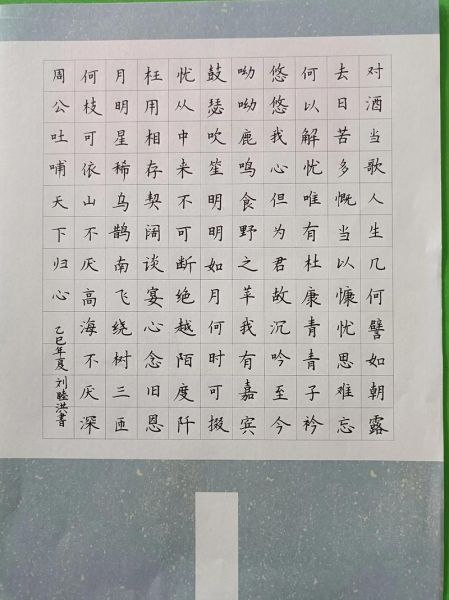 对酒当歌人生几何譬如朝露
去日苦多慨当以慷忧思难忘
何以解忧唯有杜康青青子衿
悠悠我心但为君故沉吟至今
呦呦鹿鸣食野之苹我有嘉宾
鼓瑟吹笙明明如月何时可掇
忧从中来不可断绝越陌度阡
枉用相存契阔谈宴心念旧恩
月明星稀乌鹊南飞绕树三匝
何枝可依山不厌高海不厌深
周公吐哺天下归心 乙巳年夏 刘睦洪書